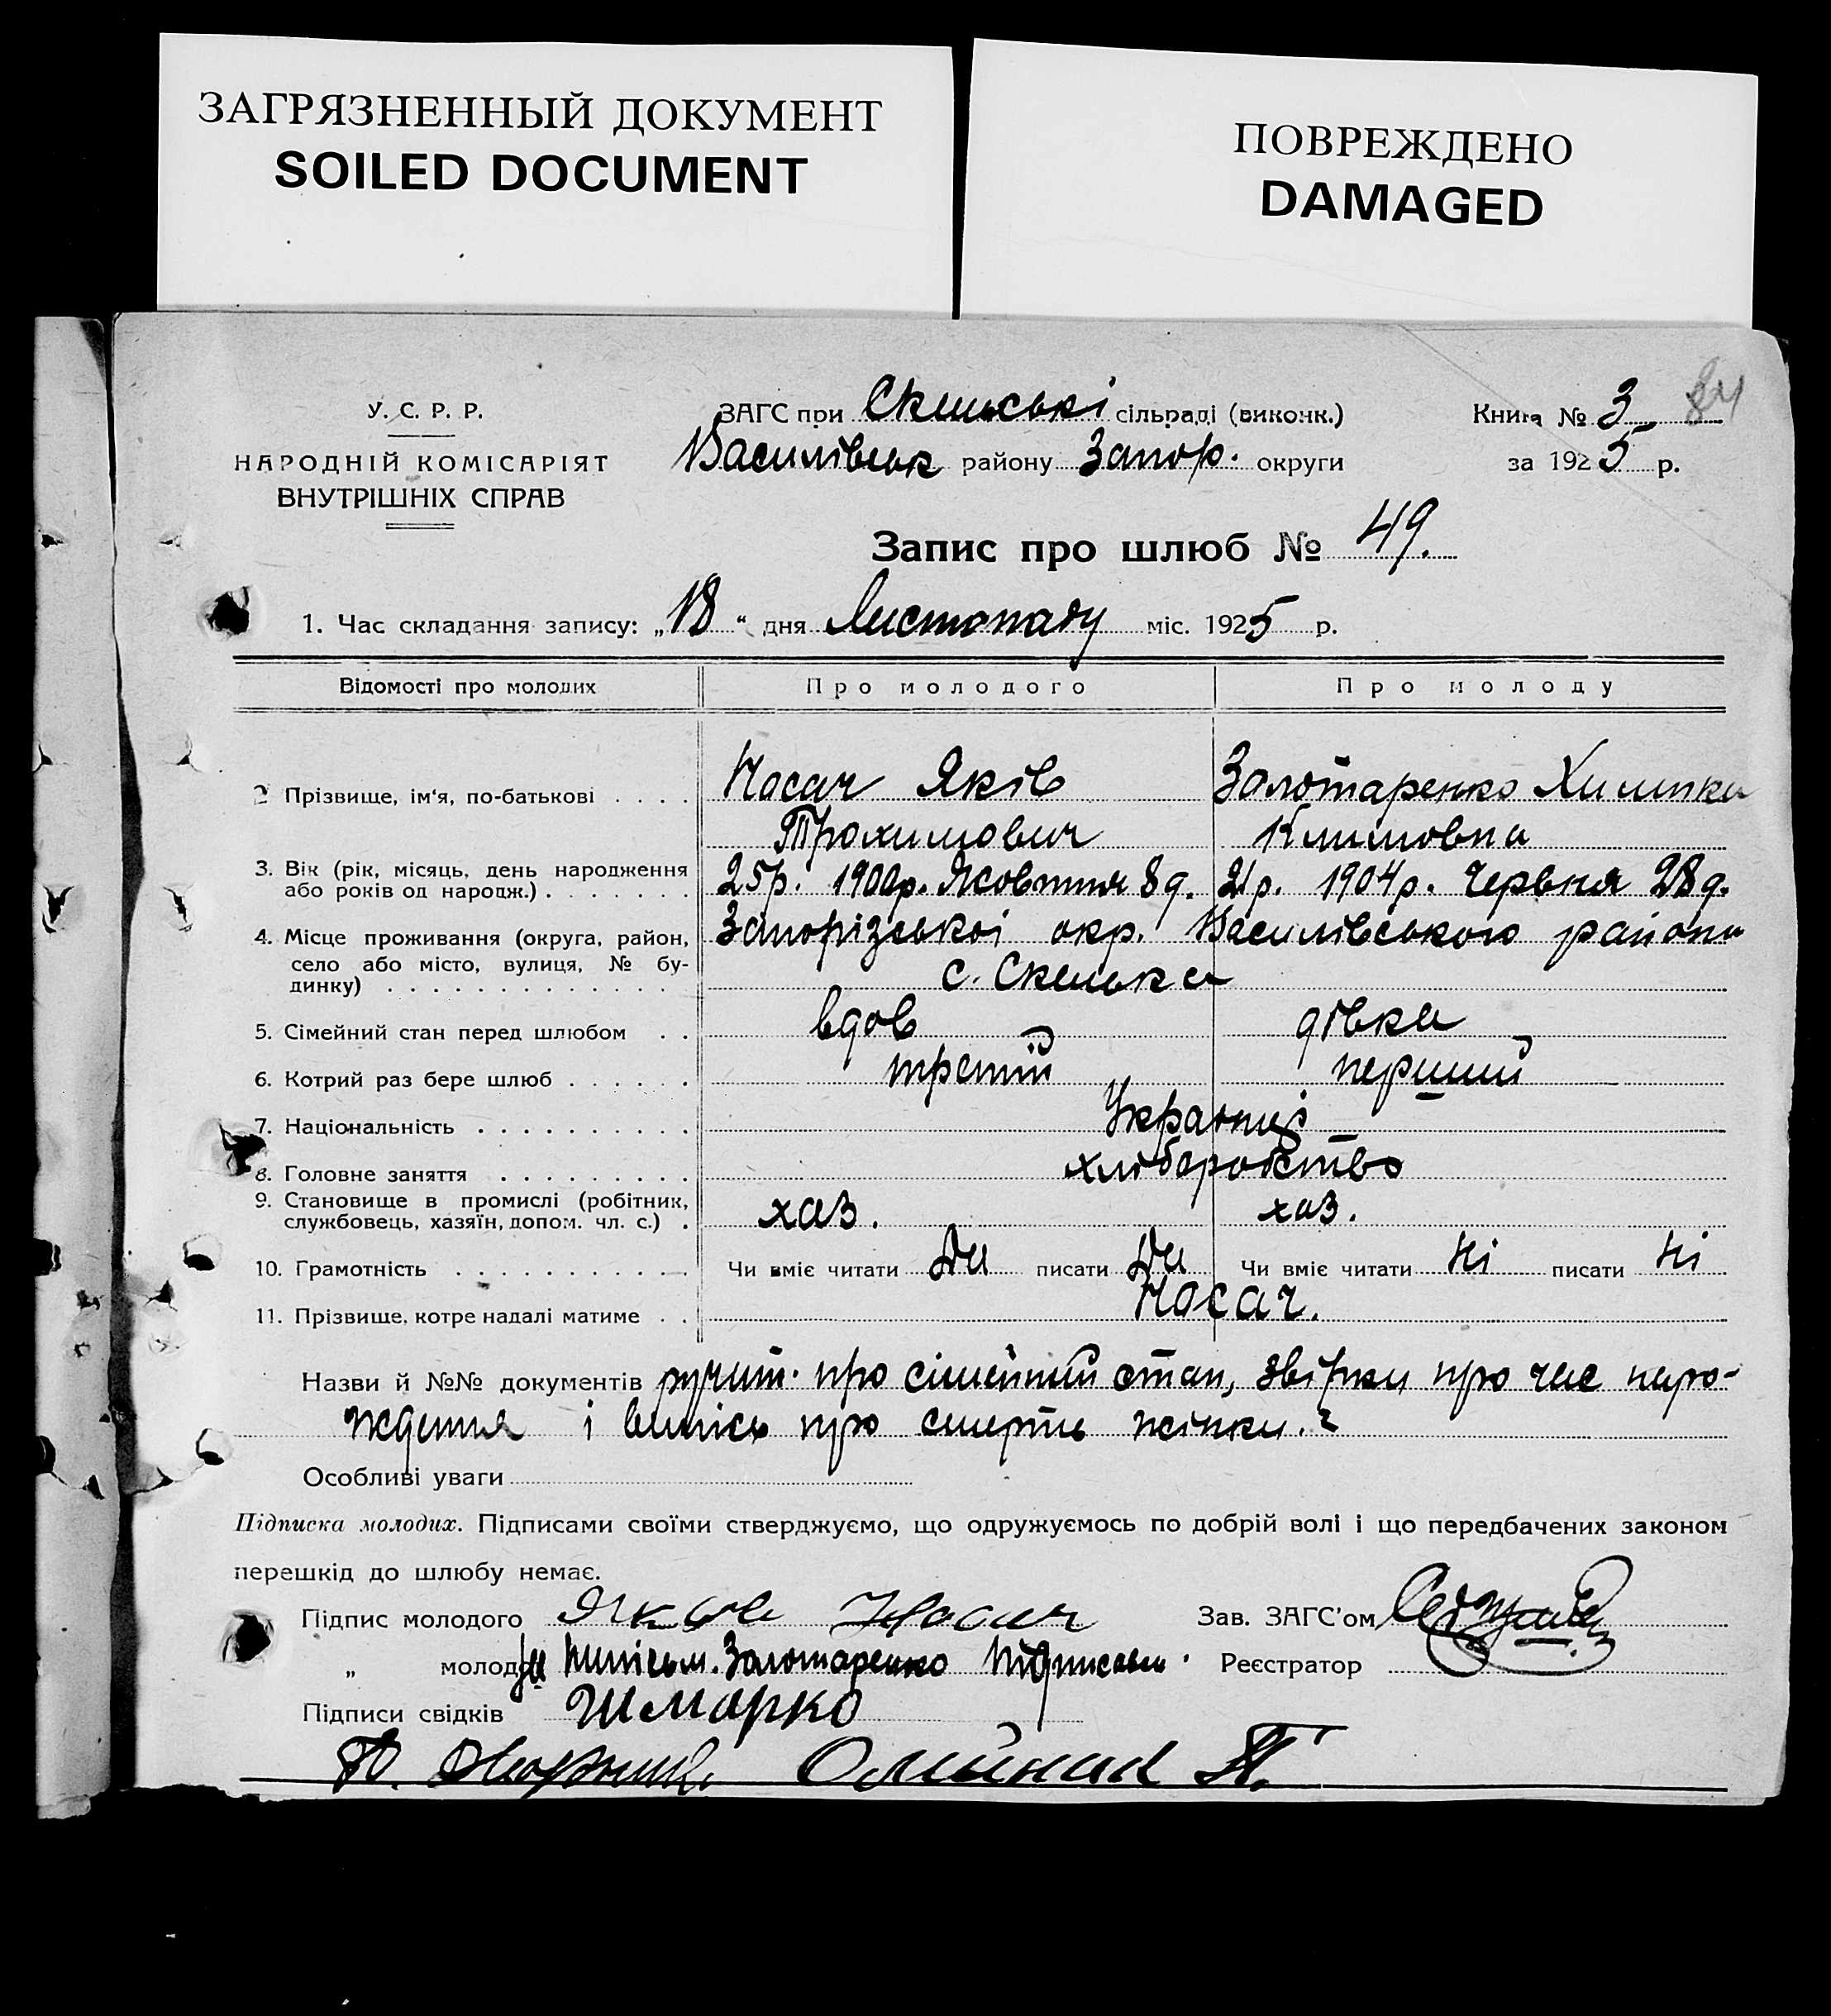 ЗАГРЯЗНЕННЫЙ ДОКУМЕНТ
SOILED DOCUMENT
ПОВРЕЖДЕНО
DAMAGED
У. С. Р. Р.
НАРОДНІЙ КОМІСАРІЯТ
ВНУТРІШНІХ СПРАВ
ЗАГС при Скельські сільраді (виконк.)
Василівськ району Запор. округи
Книга № 3 84
за 1925 р.
Запис про шлюб № 49.
1. Час складання запису: „18" дня Листопаду міс. 1925 р.
Відомості про молодих Про молодого Про молоду
2 Прізвище, ім'я, по-батькові . . . . Носач Яків Золотаренко Химка
Трохимович Климовна
3. Вік (рік, місяць, день народження 25р. 1900р. Жовтня 8д. 21р. 1904р. Червня 28д.
або років од народж.) . . . . . . .
4. Місце проживання (округа, район, Запорізської окр. Василівського району
село або місто, вулиця, № бу-
динку) . . . . . . . . . . . . . с. Скелька
5. Сімейний стан перед шлюбом . . вдов дівка
6. Котрий раз бере шлюб . . . . . . третій перший
7. Національність . . . . . . . . . . Українці
8. Головне заняття . . . . . . . . . хліборобство
9. Становище в промислі (робітник,
службовець, хазяїн, допом. чл. с.) . хаз. хаз.
10. Грамотність . . . . . . . . . . . Чи вміє читати Да писати Да Чи вміє читати Ні писати Ні
11. Прізвище, котре надалі матиме . . Носач.
Назви й №№ документів про сімейний стан, про час наро-
ждення і випись про смерть жінки.
Особливі уваги
Підписка молодих. Підписами своїми стверджуємо, що одружуємось по добрій волі і що передбачених законом
перешкід до шлюбу немає.
Підпис молодого Яков Носач Зав. ЗАГС'ом
„ молодої Золотаренко Реєстратор
Підписи свідків Шмарко
Олійник П.